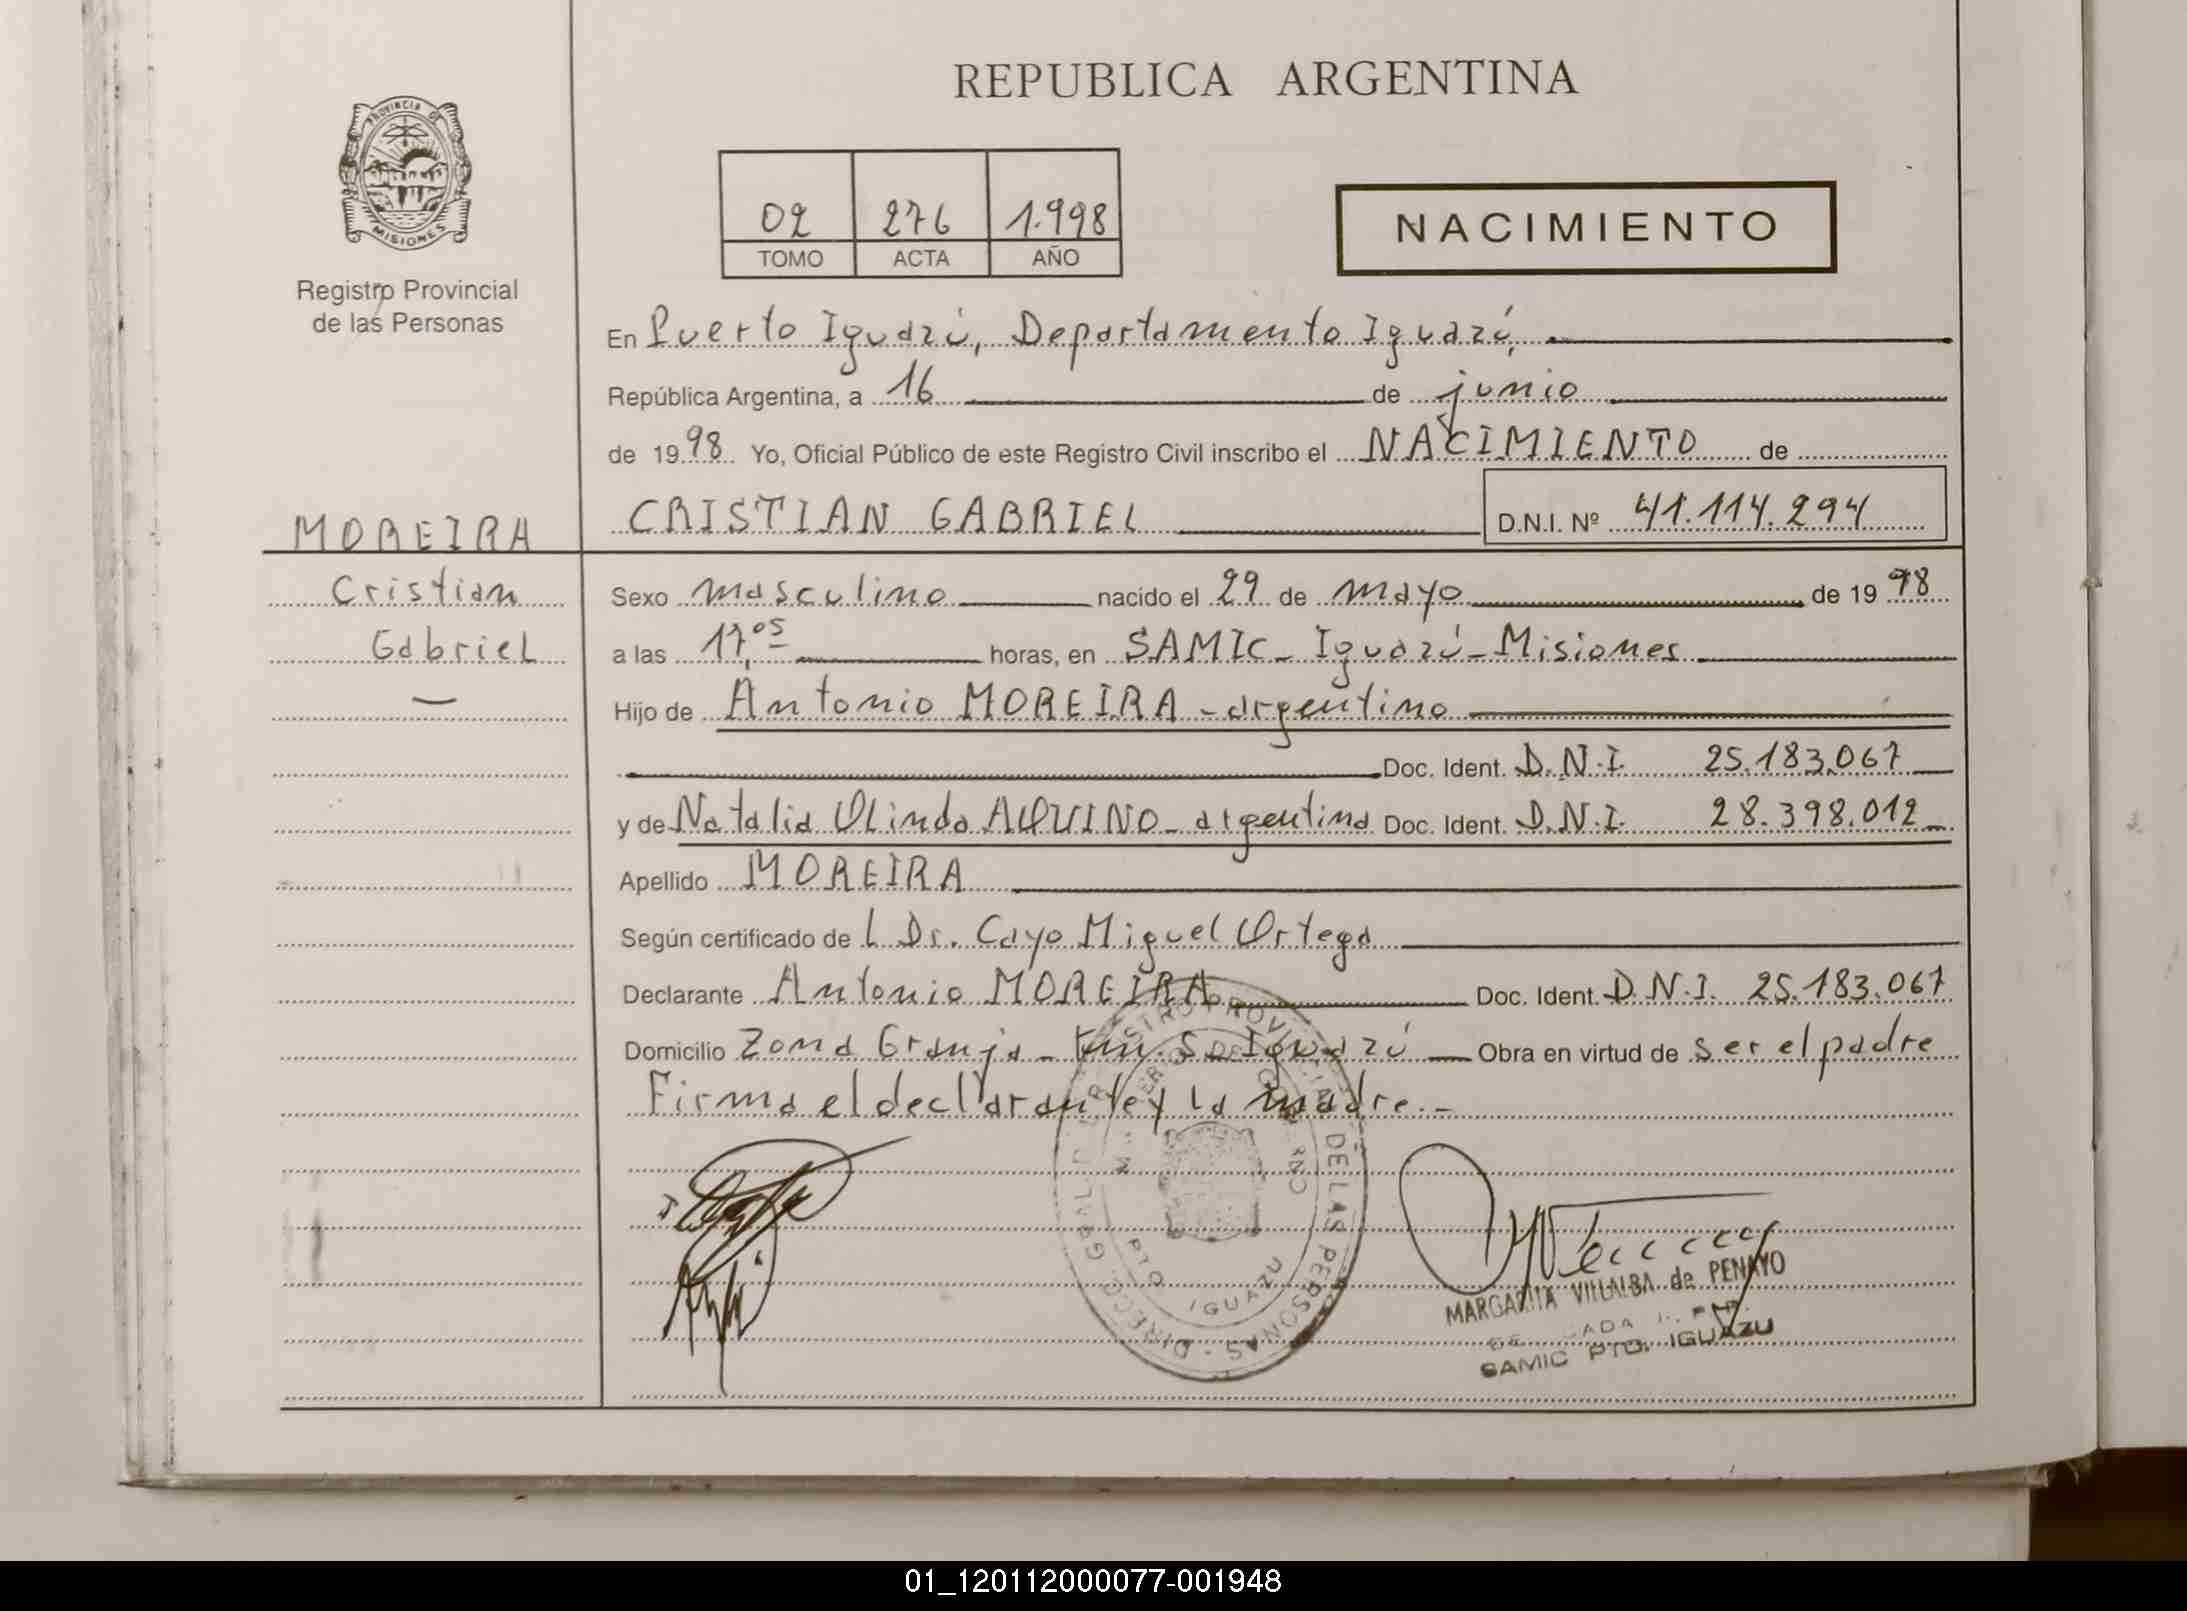 REPUBLICA ARGENTINA
PROVINCIA DE
MISIONES
Registro Provincial
de las Personas
02 276 1.998
TOMO ACTA AÑO
NACIMIENTO
En Puerto Iguazú, Departamento Iguazú,
República Argentina, a 16 de junio
de 1998 Yo, Oficial Público de este Registro Civil inscribo el NACIMIENTO de
CRISTIAN GABRIEL D.N.I. Nº 41.114.294
MOREIRA
Cristian
Gabriel
Sexo masculino nacido el 29 de mayo de 1998
a las 17,05 horas, en SAMIC - Iguazú - Misiones
Hijo de Antonio MOREIRA - argentino
Doc. Ident. D.N.I. 25.183.067
y de Natalia Olinda AQUINO - argentina Doc. Ident. D.N.I. 28.398.012
Apellido MOREIRA
Según certificado de l Dr. Cayo Miguel Ortega
Declarante Antonio MOREIRA Doc. Ident. D.N.I. 25.183.067
Domicilio Zona Granja - Km. 5 - Iguazú Obra en virtud de ser el padre
Firma el declarante y la madre.-
DIRECC. GRAL. DEL REGISTRO PROVINCIAL DE LAS PERSONAS -
MINISTERIO DE GOBIERNO
PTO IGUAZU
MARGARITA VILLALBA de PENAYO
SAMIC PTO. IGUAZU
01_120112000077-001948